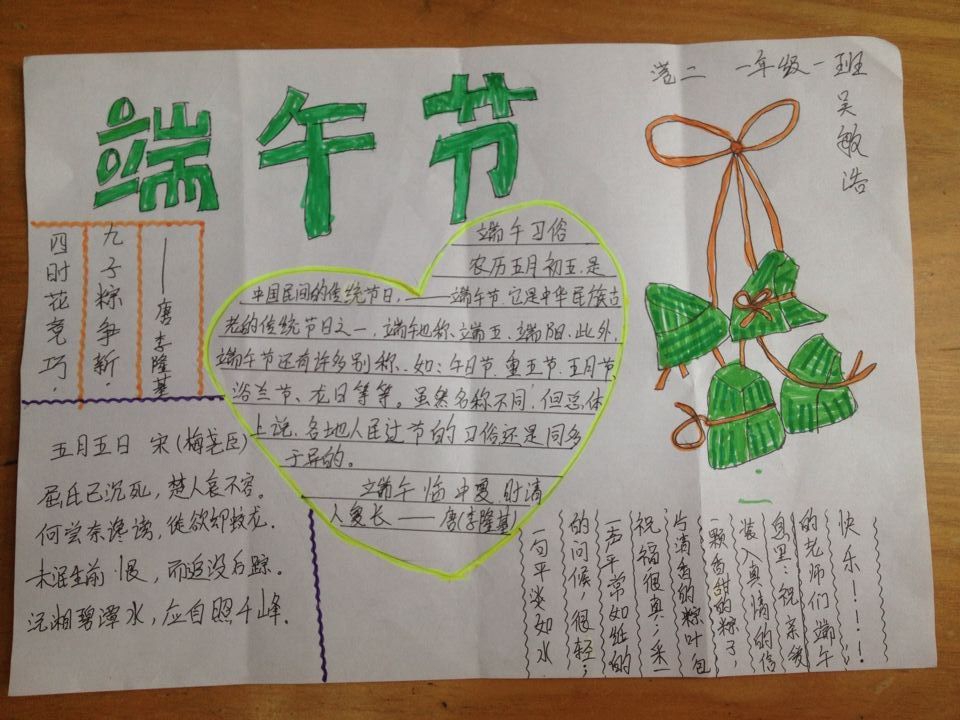 端午节
一年级一班
吴敏浩
四时花竞巧.
九子粽争新.
——唐李隆基
端午习俗
农历五月初五，是
中国民间的传统节日，——端午节，它是中华民族古
老的传统节日之一，端午也称端五、端阳.此外，
端午节还有许多别称、如：午日节、重五节、五月节
浴兰节、龙日等等。虽然名称不同，但总体
上说，各地人民过节的习俗还是同多
于异的。
端午临中夏，时清
人复长——唐(李隆基)
五月五日 宋(梅尧臣)
屈氏已沉死，楚人哀不容。
何尝奈谗谤，徒欲却蛟龙.
未泯生前恨，而追没后踪.
沅湘碧潭水，应自照千峰.
一句平淡如水
的问候，很轻；
一声平常如纸的
祝福很真；采一
片清香的粽叶包
一颗香甜的粽子，
装入真情的信
息里：祝亲爱
的老师们端午
快乐！！！！